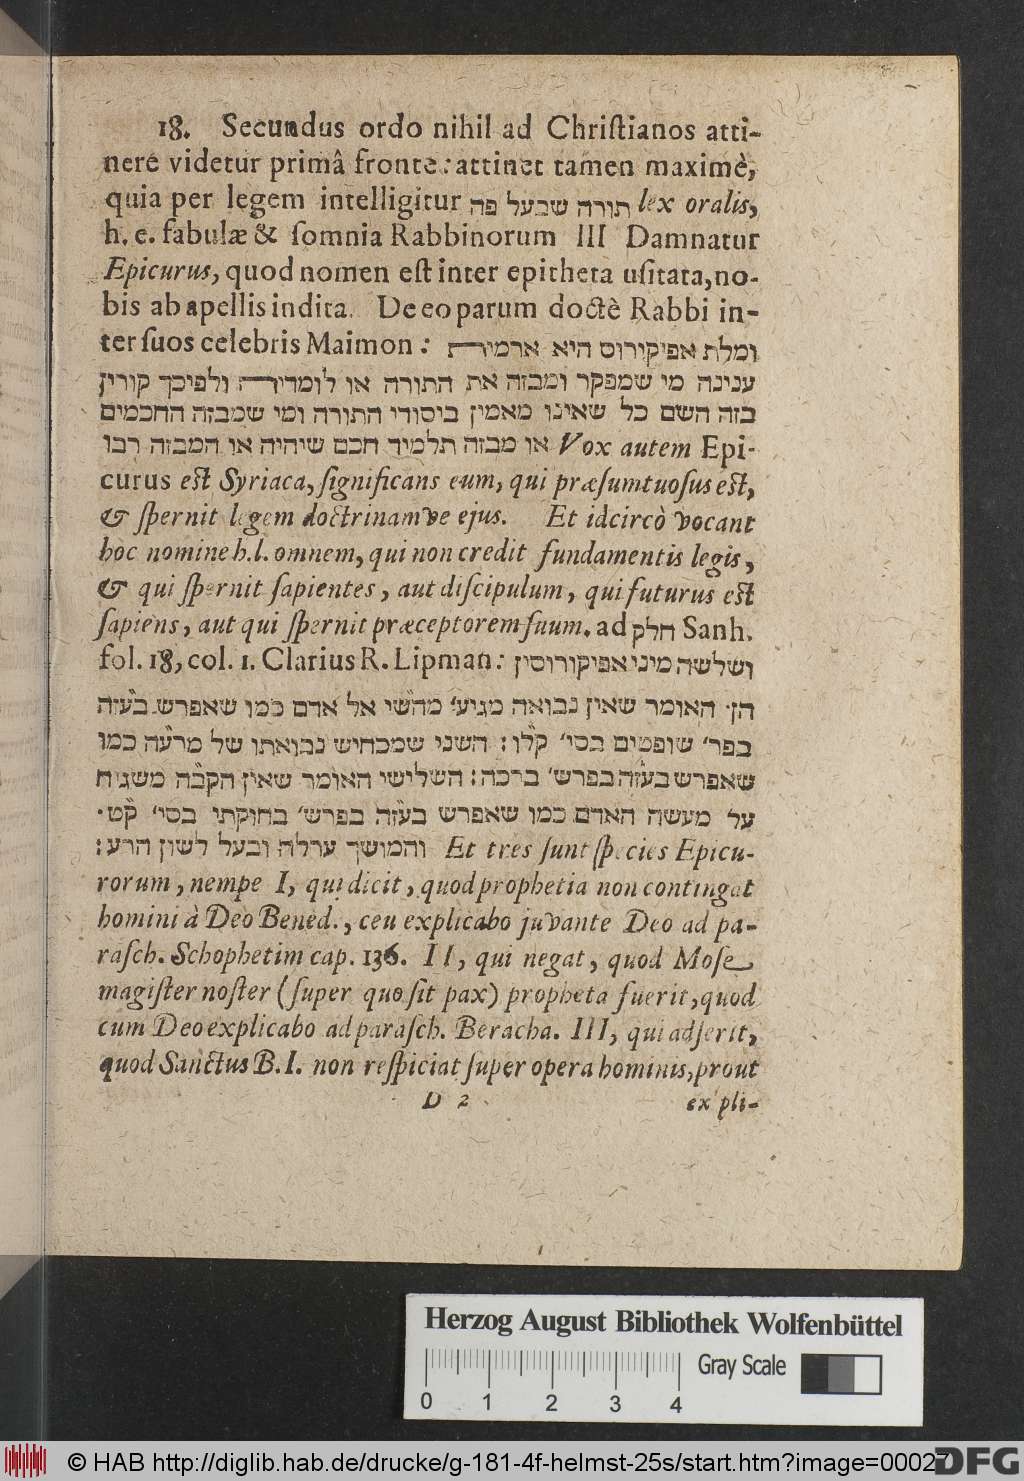 18. Secundus ordo nihil ad Chriſtianos atti-
nere videtur primâ fronte: attinet tamen maximè,
quia per legem intelligitur תורה שבעל פה lex oralis,
h. e. fabulæ & ſomnia Rabbinorum III Damnatur
Epicurus, quod nomen eſt inter epitheta uſitata, no-
bis ab apellis indita. De eo parum doctè Rabbi in-
ter ſuos celebris Maimon: ומלת אפיקירוס היא ארמית
ענינה מי שמפקר ומבזה את התורה או לומדיה ולפיכך קורין
בזה השם כל שאינו מאמין ביסודי התורה ומי שמבזה החכמים
או מבזה תלמיד חכם שיהיה או המבזה רבו Vox autem Epi-
curus eſt Syriaca, ſignificans eum, qui præſumtuoſus eſt,
& ſpernit legem doctrinamve ejus. Et idcircò vocant
hoc nomine h. l. omnem, qui non credit fundamentis legis,
& qui ſpernit ſapientes, aut diſcipulum, qui futurus eſt
ſapiens, aut qui ſpernit præceptorem ſuum. ad חלק Sanh.
fol. 18, col. 1. Clarius R. Lipman: ושלשה מיני אפיקורוסין
הן· האומר שאין נבואה מגיע׳ מהשי אל אדם כמו שאפרש בעזה
בפר׳ שופטים בסי׳ קלו: השני שמכחיש נבואתו של מרעה כמו
שאפרש בעזה בפרש׳ ברכה: השלישי האומר שאין הקבה משגיח
על מעשה האדם כמו שאפרש בעזה בפרש׳ בחוקתי בסי׳ קט·
והמושך ערלה ובעל לשון הרע: Et tres ſunt ſpecies Epicu-
rorum, nempe I, qui dicit, quod prophetia non contingat
homini à Deo Bened., ceu explicabo juvante Deo ad pa-
raſch. Schophetim cap. 136. II, qui negat, quod Moſe
magiſter noſter (ſuper quo ſit pax) propheta fuerit, quod
cum Deo explicabo ad paraſch. Beracha. III, qui adſerit,
quod Sanctus B. I. non reſpiciat ſuper opera hominis, prout
D 2 expli-
Herzog August Bibliothek Wolfenbüttel
Gray Scale
0 1 2 3 4
© HAB http://diglib.hab.de/drucke/g-181-4f-helmst-25s/start.htm?image=00027
DFG